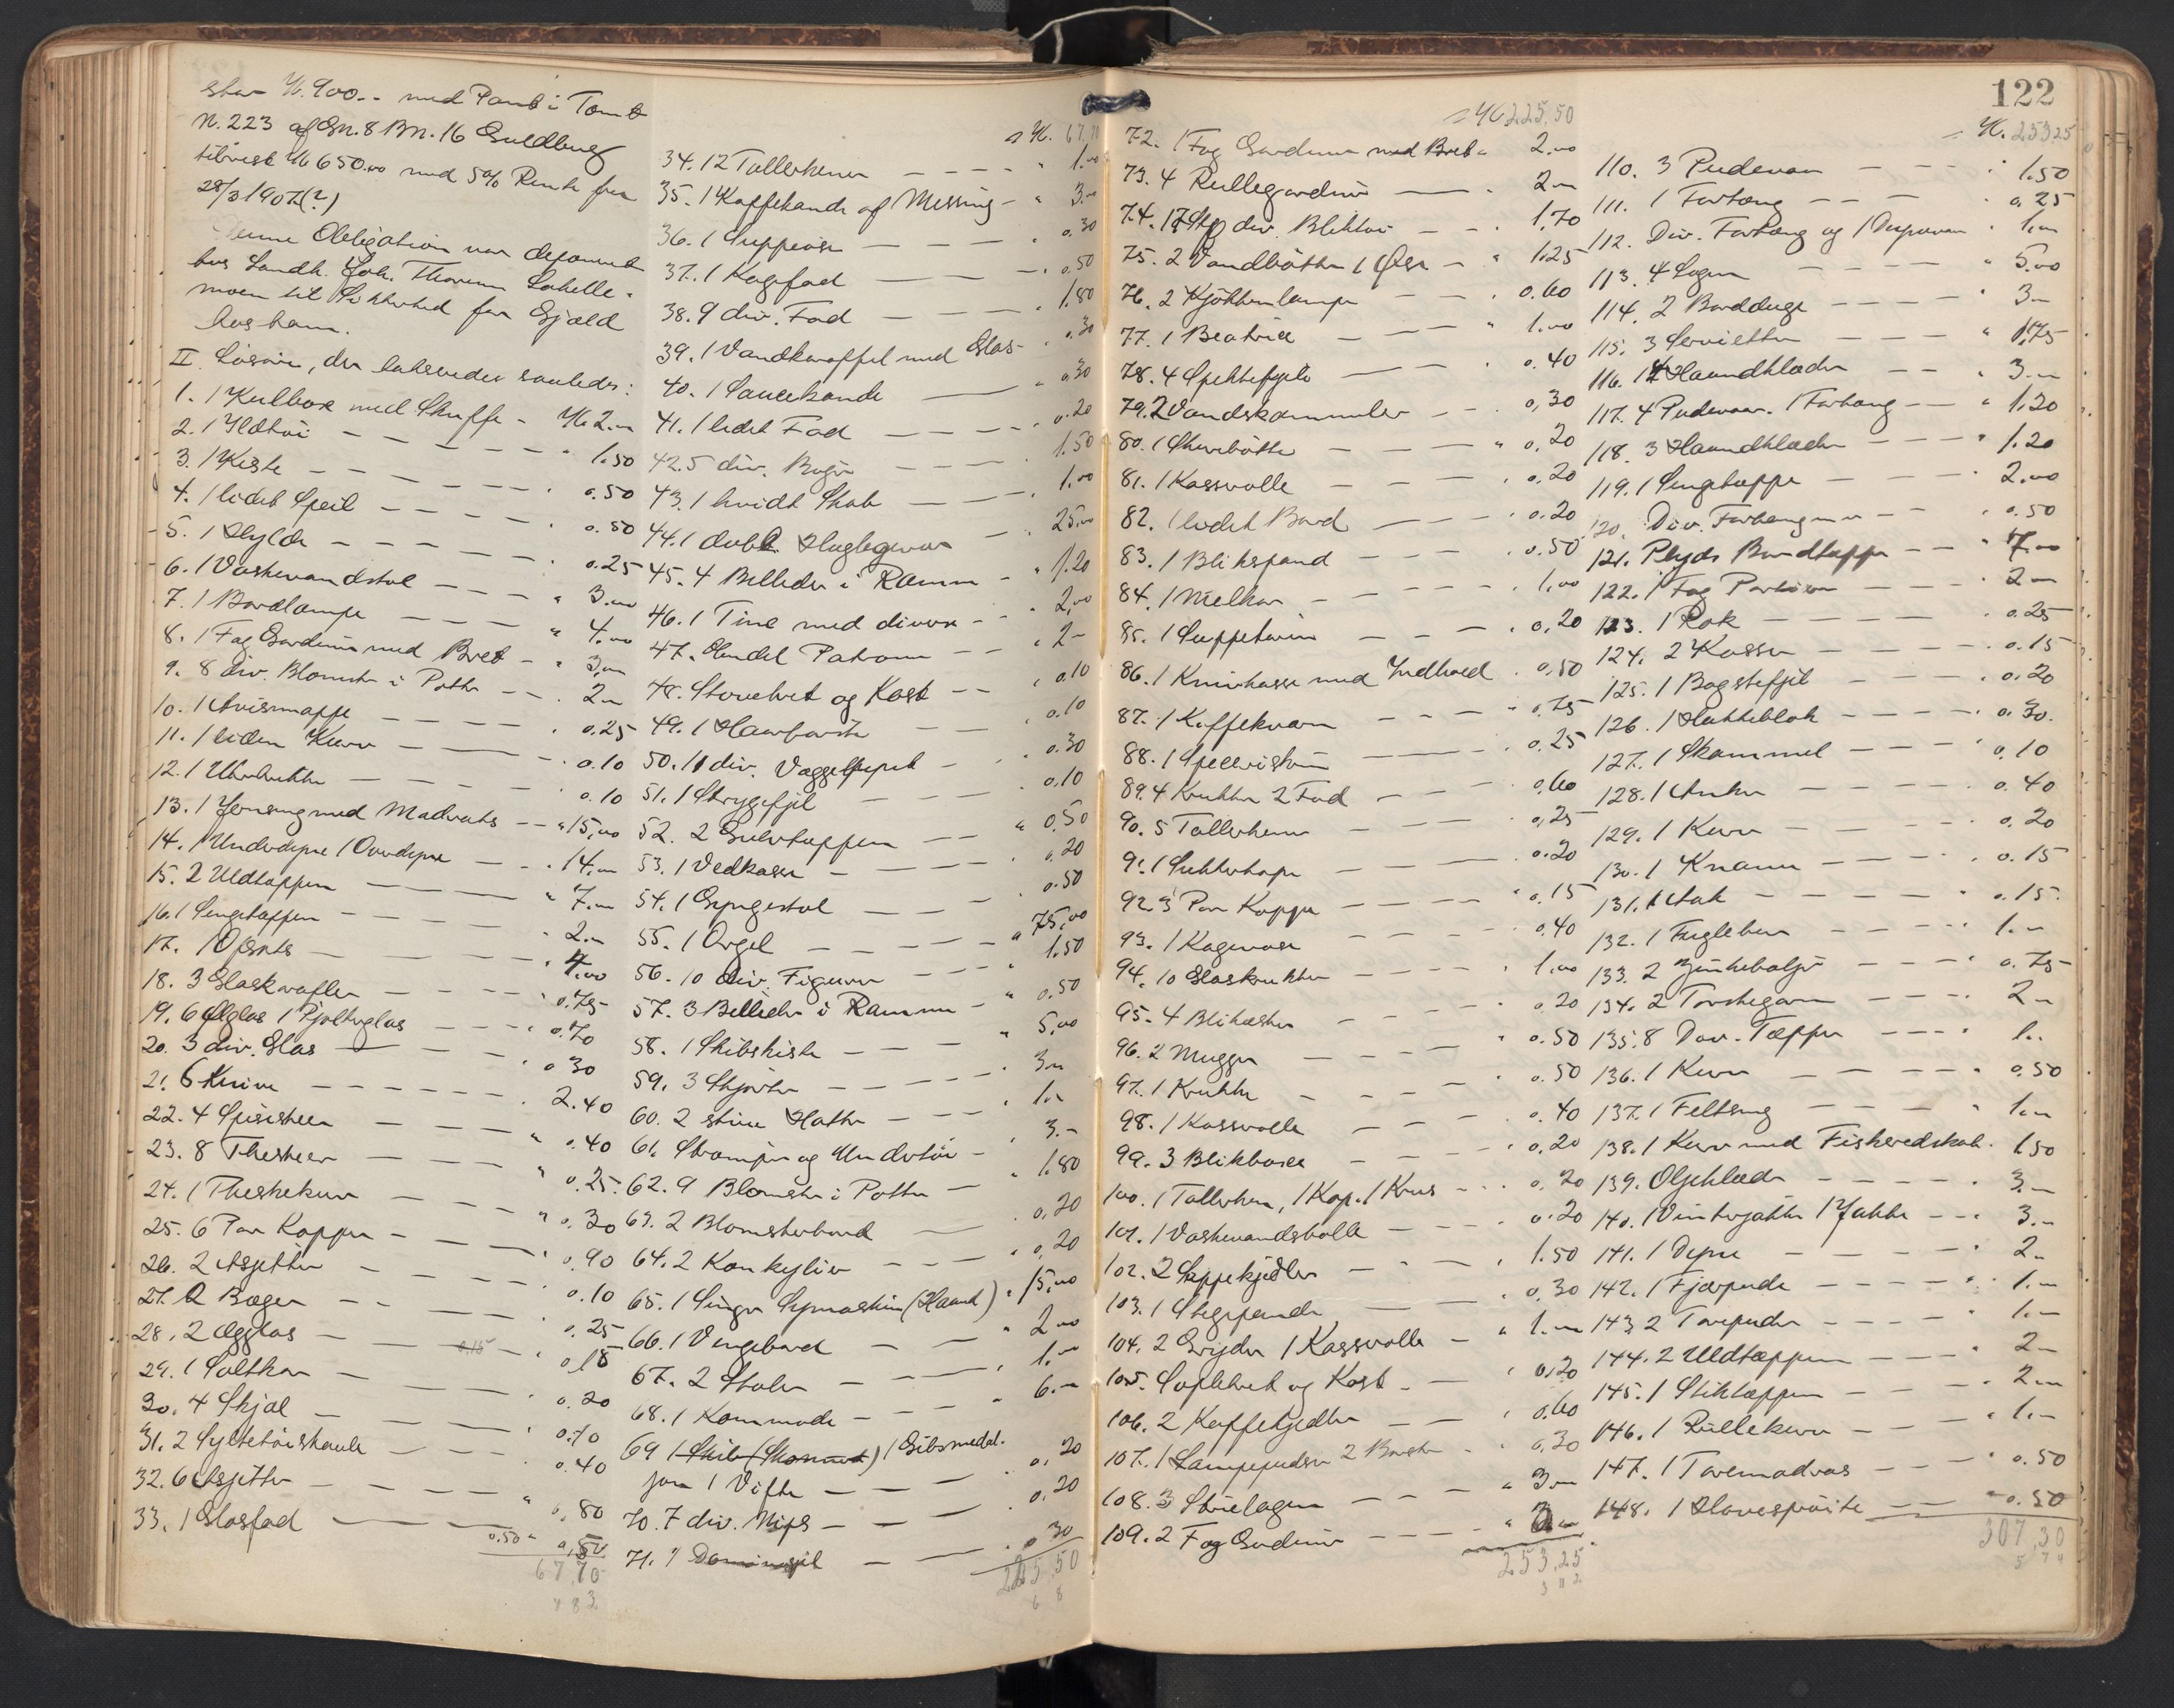 stor K. 900.- med Pant i Tomt
N. 223 af Gn. 8 Bn. 16 Guldberg
tilrest K 650.00 med 5% Rente fra
28/3 1907(?)
Denne Obligation var deponeret
hos Landh. Joh. Thoresen
moen til Sikkerhed for Gjæld
hos ham.
II. Løsøre, der taksredes saaledes:
1. 1 Kulbox med Skuffe - K. 2.-
2. 1 Ildtöi - - - " 1.50
3. 1 Kiste - - - " 0.50
4. 1 lidet Speil - - - " 0.50
5. 1 Hylde - - - " 0.25
6. 1 Vaskevandstol - - " 3.00
7. 1 Bordlampe - - - " 4.00
8. 1 Fag Gardiner med Bret - " 3.00
9. 8 div. Blomster i Potter - - " 2.-
10. 1 Avismappe - - - " 0.25
11. 1 liden Kurv - - - " 0.10
12. 1 - - - " 0.10
13. 1 Jernseng med Madrats - - " 15.00
14. 1 Underdyne 1 Overdyne - - " 14.00
15. 2 Uldtæpper - - " 7.00
16. 1 Sengetæppe - - - " 2.-
17. 1 - - - " 4.00
18. 3 Glaskarafler - - - " 0.75
19. 6 Ølglas 1 Pjolterglas - - - " 0.70
20. 3 div. Glas - - - " 0 30
21. 6 Knive - - - " 2.40
22. 4 Spiseskeer - - - " 0.40
23. 8 Theskeer - - - " 0.25
24. 1 Theskekurv - - - " 0.30
25. 6 Par Kopper - - - " 0.90
26. 2 Asjetter - - - " 0.10
27. 2 Bæger - - - " 0.25
28. 2 Ægglas - 0.15 - " 0 15
29. 1 Saltkar - - - " 0.20
30. 4 Skjal - - - " 0.70
31. 2 Syltetöiskaale - - - " 0.40
32. 6 Asjetter - - - " 0.80
33. 1 Glasfad - - - 0.50 " 0.50
67,70
K. 67,70
34. 12 Tallerkener - - - " 1.00
35. 1 Kaffekande af Messing - " 3.00
36. 1 Suppeøse - - - " 0.30
37. 1 Kagefad - - - " 0.50
38. 9 div. Fad - - - " 1.80
39. 1 Vandkaraffel med Glas - " 0.30
40. 1 Saucekande - - " 0.30
41. 1 lidet Fad - - - " 0.20
42. 5 div. Bøger - - - " 1.50
43. 1 hvidt Skab - - " 1.00
44. 1 dobb. Haglegevær - - 25.00
45. 4 Billeder i Ramme - " 1.20
46. 1 Tine med diverse - - " 2.00
47. Endel Patroner - - - " 2-
48. Støvebret og Kost - - " 0.10
49. 1 Haarbørste - - " 0.10
50. 11 div. Vægge - " 0.30
51. 1 Strygefjel - - - 0.10
52. 2 Gulvtæpper - - " 0.50
53. 1 Vedkasse - - - " 0.20
54. 1 Gyngestol - - - 0.50
55. 1 Orgel - - - " 75,00
56. 10 div. Figurer - - - " 1.50
57. 3 Billeder i Ramme - " 0.50
58. 1 Skibskiste - - - " 5.00
59. 3 Skjorter - - - " 3.-
60. 2 stive Hatter - - - " 1.-
61. Strømper og Undertöi - " 3.-
62. 9 Blomster i Potter - " 1.80
63. 2 Blomsterbord - - 0.20
64. 2 Konkylier - - " 0,20
65. 1 Singer Symaskin (Haand) " 15.00
66. 1 Vingebord - - " 2.00
67. 2 Stoler - - - " 1.00
68. 1 Kommode - - - " 6.-
69 1 Skib (Skonnert) 1 Gibsmedal.
jon 1 Vifte - - - " 0.20
70. 7 div. Nips - - - " 0.20
71. 1 Dominospil - - " 0.30
225,50
122
K 225,50
72. 1 Fag Gardiner med Bret " 2.00
73. 4 Rullegardiner - - " 2.-
74. 17 Stk div. Bliktöi - - " 1.70
75. 2 Vandbøtter 1 Øse - " 1.25
76. 2 Kjökkenlamper - - " 0.60
77. 1 Beatrice - - - " 1.00
78. 4 - - - " 0.40
79. 2 Vandskammeler - - " 0,30
80. 1 Skurebøtte - - " 0.20
81. 1 Kasserolle - - - " 0.20
82. 1 lidet Bord - - - " 0.20
83. 1 Blikspand - - - " 0.50
84. 1 Melkar - - - " 1.00
85. 1 Suppeterrin - - - " 0.20
86. 1 Knivkasse med Indhold " 0.50
87. 1 Kaffekværn - - - " 0.75
88. 1 - - " 0.25
89. 4 Krukker 2 Fad - - " 0.60
90. 5 Tallerkener - - - 0.25
91. 1 Sukkerkop - - - 0.20
92. 3 Par Kopper - - - " 0.15
93. 1 Kagerose - - - 0.40
94. 10 Glaskrukker - - " 1.00
95. 4 Blikæsker - - - " 0.20
96. 2 Mugger - - - " 0.50
97. 1 Krukke - - - " 0.50
98. 1 Kasserolle - - - " 0.40
99. 3 Blikboxer - - - " 0.20
100. 1 Tallerken, 1 Kop, 1 Krus - " 0.20
101. 1 Vaskevandsbolle - - " 0.20
102. 2 Suppekjedler - - - 1.50
103. 1 Stegepande - - - " 0.30
104. 2 Gryder 1 Kasserolle - " 1.00
105. Sopebret og Kost - - - " 0.20
106. 2 Kaffekjedler - - " 0.60
107. 1 Lampepudser 2 Børster - " 0.30
108. 3 Strielagen - - - " 3.00
109. 2 Fag Gardiner - - - " 2.-
253,25
K. 253 25
110. 3 Pudevar - - - " 1.50
111. 1 Forhæng - - - " 0.25
112. Div. Forhæng og 1 Dynevar " 1.00
113. 4 Lagen - - - " 5.00
114. 2 Bordduge - - - " 3.-
115. 3 Servietter - - - " 0.75
116. 12 Haandklæder - - " 3.-
117. 4 Pudevar. 1 Forhæng - - " 1.20
118. 3 Haandklæder - - - " 1.20
119. 1 Sengetæppe - - - 2.00
120. Div. Forhæng - - " 0.50
121. Plyds Bordtæppe - - " 7.00
122. 1 Fag Portierer - - " 2.-
123. 1 Rok - - - " 0.25
124. 2 Kasser - - - " 0.15
125. 1 Bagstefjel - - - " 0.20
126. 1 Hakkeblok - - - " 0.30.
127. 1 Skammel - - - " 0.10
128. 1 Anker - - - " 0.40
129. 1 Kurv - - - " 0.20
130. 1 - - - " 0.15
131. 1 - - - " 0.15.
132. 1 Fuglebur - - - " 1.-
133. 2 Zinkebaljer - - - " 0.75
134. 2 Torskegarn - - - " 2.-
135. 8 Dør. Tæpper - - - " 1..
136. 1 Kurv - - - " 0.50
137. 1 Feltseng - - - " 1.00
138. 1 Kurv med Fiskeredskab. 1.50
139. Oljeklæder - - - " 3.-
140. 1 Vinterjakke 1 Jakke - - " 3.-
141. 1 Dyne - - - " 2.-
142. 1 Fjærpude - - - " 1.-
143. 2 Tarepuder - - - " 1.-
144. 2 Uldtæpper - - - " 2-
145. 1 Stiktæppe - - - 2.-
146. 1 Rullekurv - - - " 1.-
147. 1 Taremadras - - - " 0.50
148. 1 Havesprøite - - " 0.50
307,30